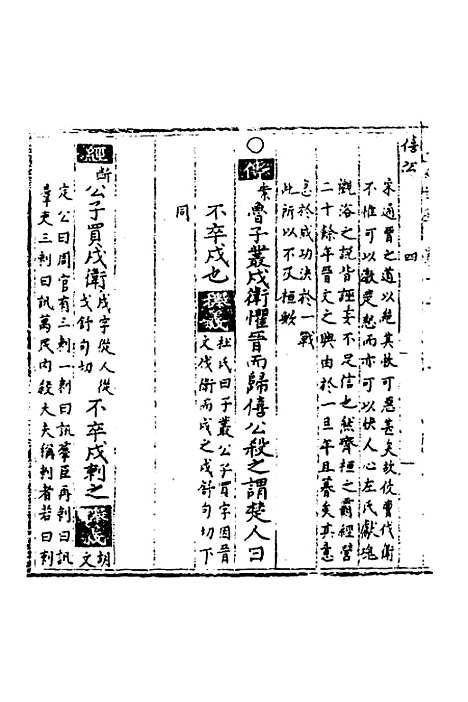 僖公
四
宋通晋之道以絶其故可惡甚矣故侵曹伐衛
不惟可以激楚怒而亦可以快人心左氏獻塊
觀浴之說皆誣妄不足信也然齊桓之霸經營
二十餘年晋文之興由於一旦年且暮矣其意
急於成功決於一戰
此所以不及桓歟
傳案魯子叢戍衛懼晋而歸僖公殺之謂楚人曰
不卒戍也 杜氏曰子叢公子買字因晋
文伐衛而戍之戍舒句切下
同
經斷公子買戍衛戍字從人從
戈舒句切不卒戍刺之 胡
文
定公曰周官有三刺一刺曰訊羣臣再刺曰訊
羣吏三刺曰訊萬民内殺大夫稱刺者若曰刺